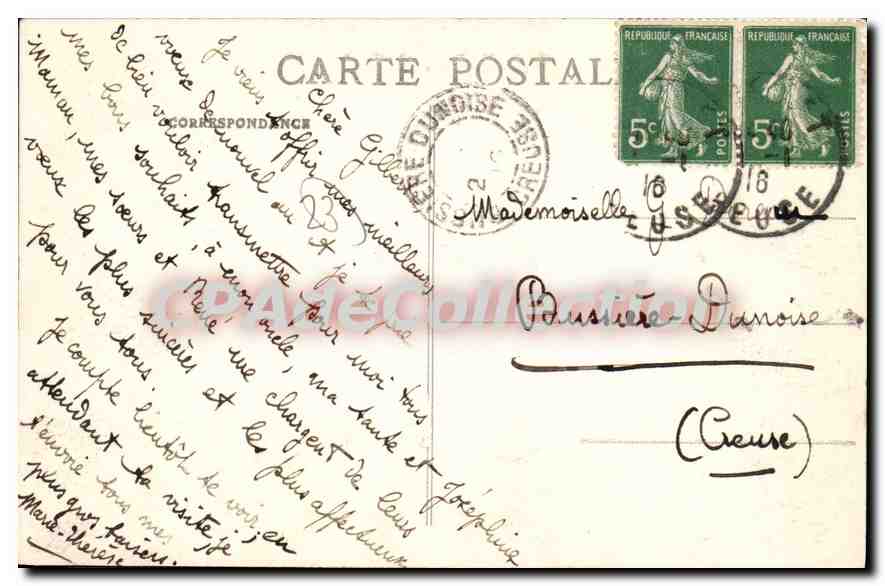 CARTE POSTALE
CORRESPONDANCE
RÉPUBLIQUE FRANÇAISE
5c
POSTES
RÉPUBLIQUE FRANÇAISE
5c
POSTES
DUNOISE
CREUSE
2
18
EUSE
18
EUSE
Chère Gilberte
Je viens t'offrir mes meilleurs
voeux de nouvel an et je te prie
de bien vouloir transmettre pour moi tous
mes bons souhaits à mon oncle, ma tante et Joséphine
Maman, mes soeurs et René me chargent de leurs
voeux les plus sincères et les plus affectueux
pour vous tous.
Je compte bientôt te voir, en
attendant ta visite, je
t'envoie tous mes
plus gros baisers.
Marie-Thérèse
23
Mademoiselle
Bussière-Dunoise
(Creuse)
CPAdeCollection